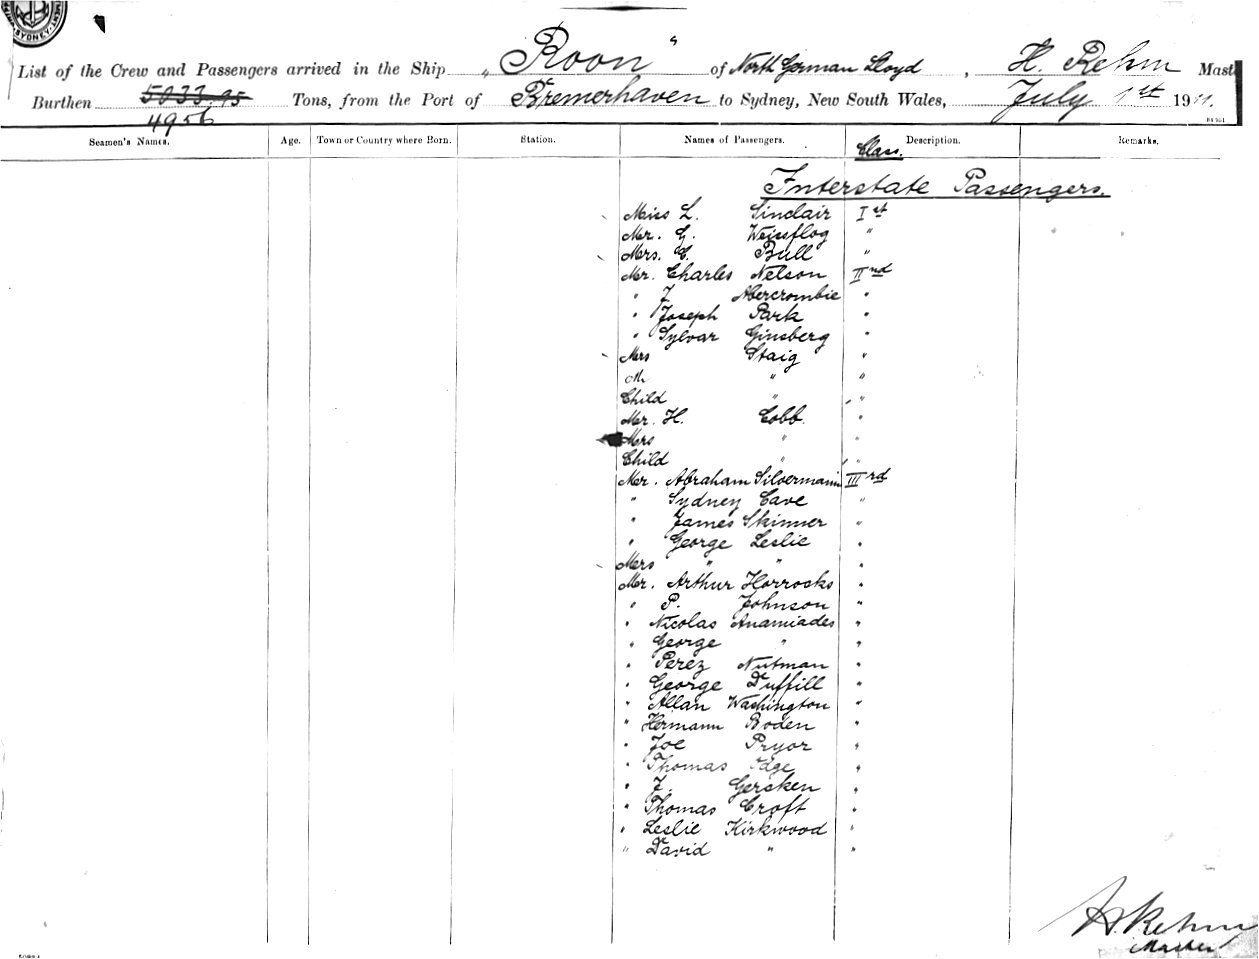 SYDNEY
List of the Crew and Passengers arrived in the Ship „ Roon " of North German Lloyd , H. Rehm Mast
Burthen 5033,95 Tons, from the Port of Bremerhaven to Sydney, New South Wales, July 1st 1911.
4956
Seamen's Names. Age. Town or Country where Born. Station. Names of Passengers. Class. Description. Remarks.
Interstate Passengers.
Miss L. Sinclair Ist
Mr. G. Weissflog "
Mrs. C. Bull "
Mr. Charles Nelson IInd
" J Abercrombie "
" Joseph Park "
" Sylvar Ginsberg "
Mrs Staig "
M " "
Child " "
Mr. H. Cobb "
Mrs " "
Child " "
Mr. Abraham Silvermann IIIrd
" Sydney Cave "
" James Skinner "
" George Leslie "
Mrs " " "
Mr. Arthur Horrocks "
" P. Johnson "
" Nicolas Anamiades "
" George " "
" Perez Nutman "
" George Duffill "
" Allan Washington "
" Hermann Boden "
" Joe Pryor "
" Thomas Edge "
" J. Gersken "
" Thomas Croft "
" Leslie Kirkwood "
" David " "
H. Rehm
Master